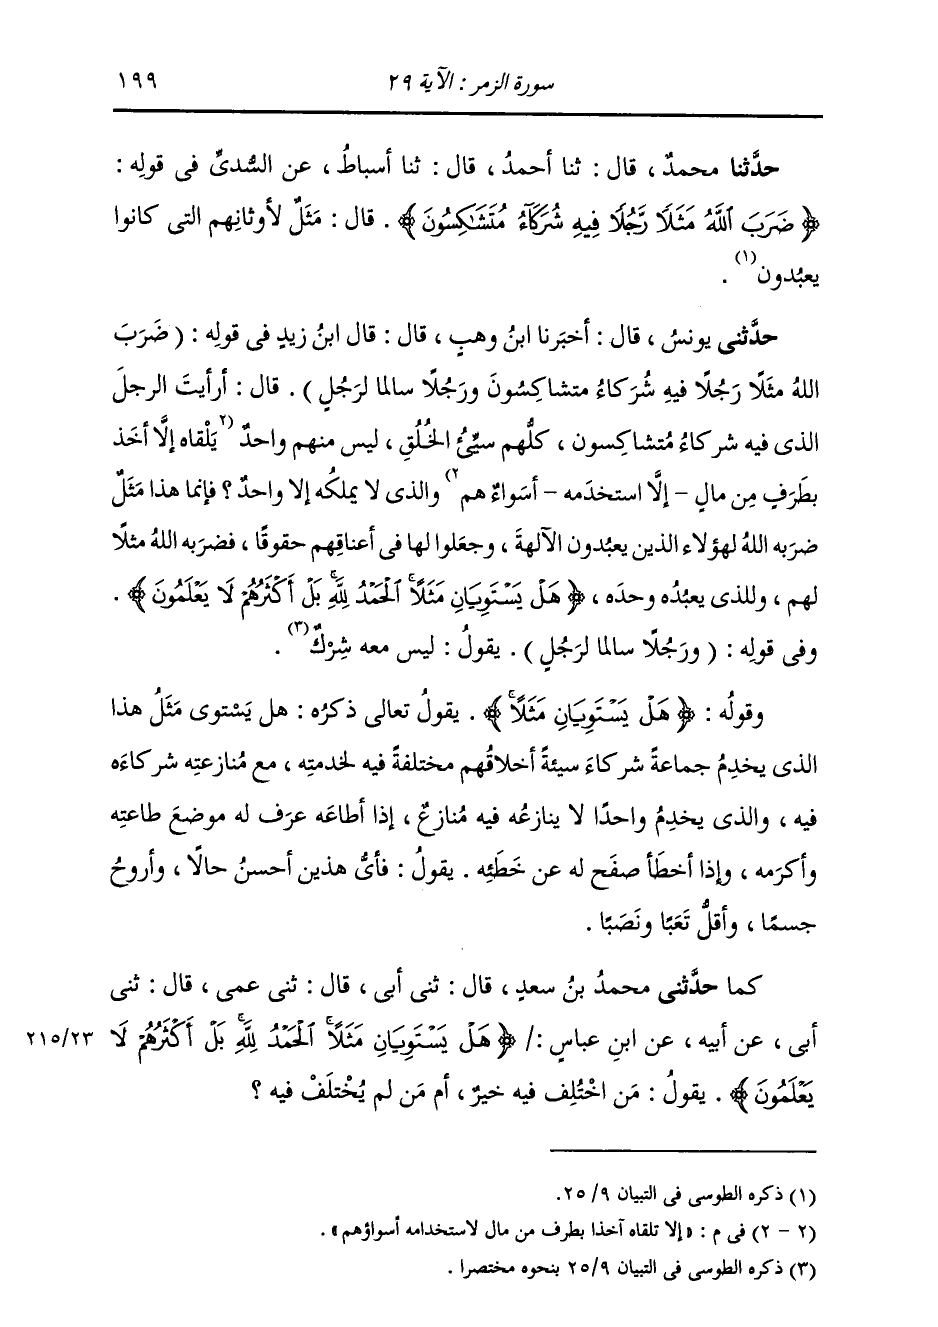 سورة الزمر : الآية ٢٩ ١٩٩
حدَّثنا محمدٌ ، قال : ثنا أحمدُ ، قال : ثنا أسباطُ ، عن السُّدىِّ فى قولِه :
﴿ ضَرَبَ ٱللَّهُ مَثَلًا رَّجُلًا فِيهِ شُرَكَآءُ مُتَشَـٰكِسُونَ ﴾ . قال : مَثَلٌ لأوثانِهم التى كانوا
يعبُدون (١) .
حدَّثنى يونسُ ، قال : أخبَرنا ابنُ وهبٍ ، قال : قال ابنُ زيدٍ فى قولِه : ( ضَرَبَ
اللهُ مثَلًا رَجُلًا فيهِ شُرَكاءُ متشاكِسُونَ ورَجُلًا سالما لرَجُلٍ ) . قال : أرأيتَ الرجلَ
الذى فيه شركاءُ مُتشاكِسون ، كلُّهم سيِّئُ الخُلُقِ ، ليس منهم واحدٌ (٢ يَلْقاه إلَّا أخَذ
بطَرَفٍ مِن مالٍ - إلَّا استخدَمه - أسَواءٌ هم ٢) والذى لا يملكُه إلا واحدٌ ؟ فإنما هذا مَثَلٌ
ضرَبه اللهُ لهؤلاء الذين يعبُدون الآلهةَ ، وجعَلوا لها فى أعناقِهم حقوقًا ، فضرَبه اللهُ مثلًا
لهم ، وللذى يعبُدُه وحدَه ، ﴿ هَلْ يَسْتَوِيَانِ مَثَلًا ۚ ٱلْحَمْدُ لِلَّهِ ۚ بَلْ أَكْثَرُهُمْ لَا يَعْلَمُونَ ﴾ .
وفى قولِه : ( ورَجُلًا سالما لرَجُلٍ ) . يقولُ : ليس معه شِرْكٌ (٣) .
وقولُه : ﴿ هَلْ يَسْتَوِيَانِ مَثَلًا ۚ ﴾ . يقولُ تعالى ذكرُه : هل يَسْتوى مَثَلُ هذا
الذى يخدِمُ جماعةً شركاءَ سيئةً أخلاقُهم مختلفةً فيه لخدمتِه ، مع مُنازعتِه شركاءَه
فيه ، والذى يخدِمُ واحدًا لا ينازعُه فيه مُنازعٌ ، إذا أطاعَه عرَف له موضعَ طاعتِه
وأكرَمه ، وإذا أخطَأ صفَح له عن خَطَئِه . يقولُ : فأىُّ هذين أحسنُ حالًا ، وأروحُ
جسمًا ، وأقلُّ تَعَبًا ونَصَبًا .
كما حدَّثنى محمدُ بنُ سعدٍ ، قال : ثنى أبى ، قال : ثنى عمى ، قال : ثنى
أبى ، عن أبيه ، عن ابنِ عباسٍ :/ ﴿ هَلْ يَسْتَوِيَانِ مَثَلًا ۚ ٱلْحَمْدُ لِلَّهِ ۚ بَلْ أَكْثَرُهُمْ لَا ٢١٥/٢٣
يَعْلَمُونَ ﴾ . يقولُ : مَن اخْتُلِف فيه خيرٌ ، أم مَن لم يُخْتلَفْ فيه ؟
(١) ذكره الطوسى فى التبيان ٩/ ٢٥.
(٢ - ٢) فى م : « إلا تلقاه آخذا بطرف من مال لاستخدامه أسواؤهم » .
(٣) ذكره الطوسى فى التبيان ٢٥/٩ بنحوه مختصرا .